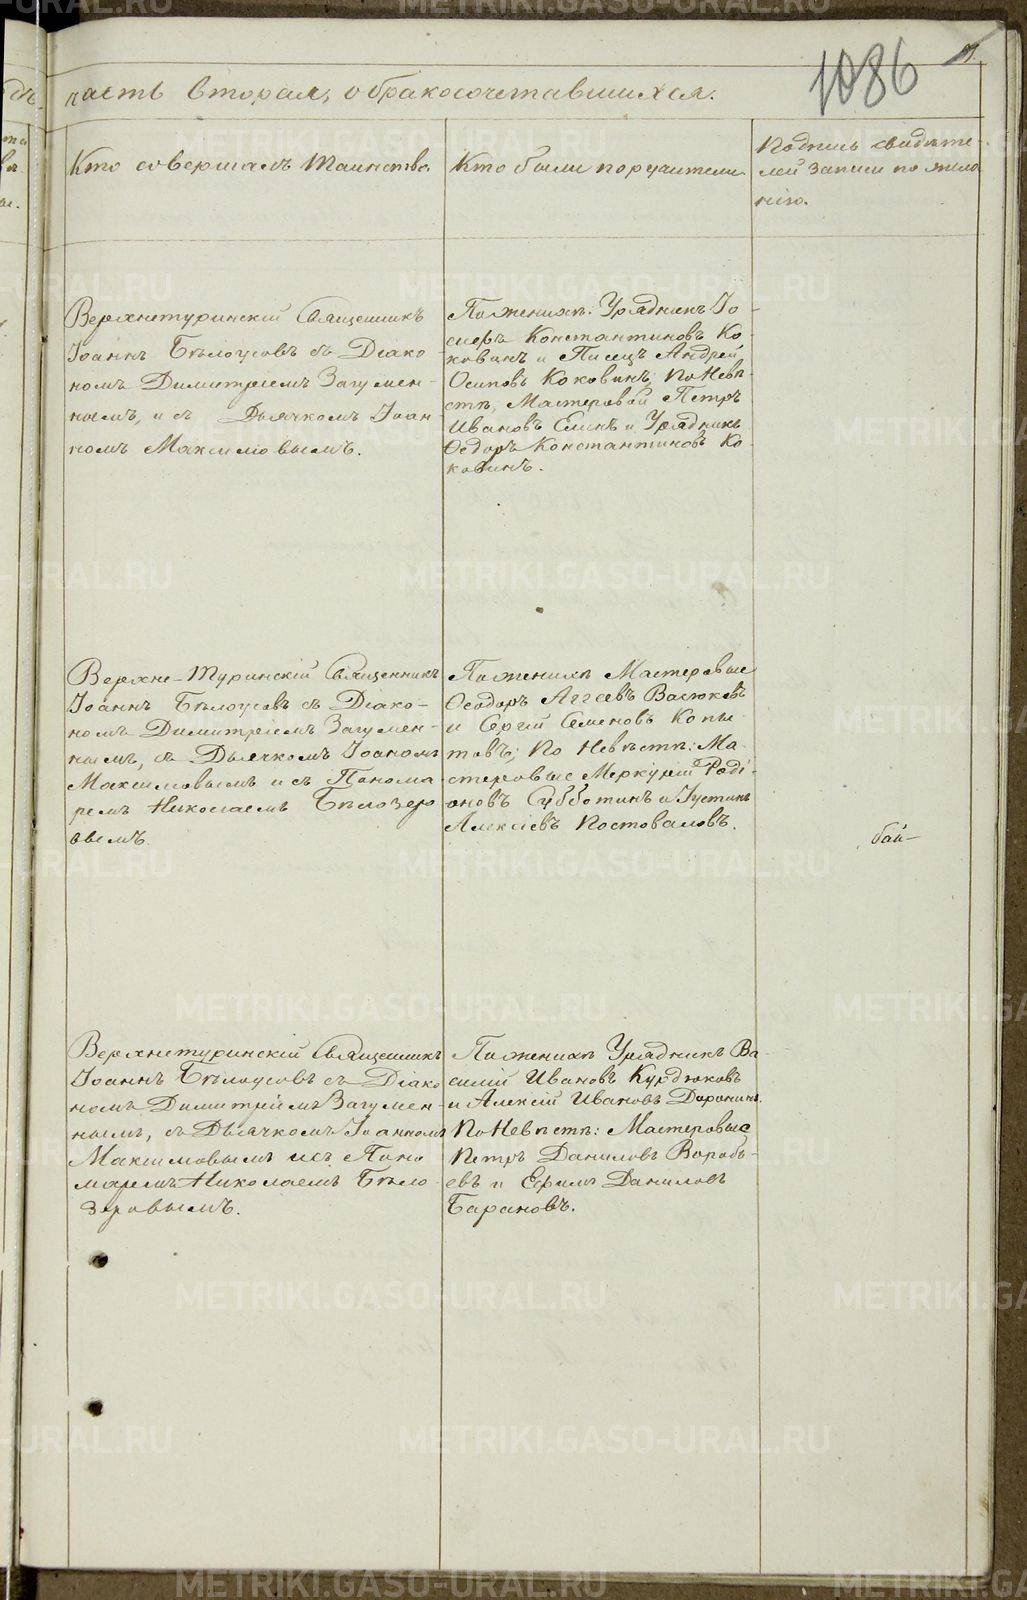 1086
часть вторая, о бракосочетавшихся.
Кто совершалъ таинство.
Кто были поручители
Подпись свидѣте-
лей записи по жела
нію.
Верхнетуринскій Священникъ
Іоаннъ Бѣлоусовъ съ Діако
номъ Димитріемъ Загумен-
нымъ, и съ Дьячкомъ Іоан
номъ Максимовымъ.
По женихѣ: Урядникъ Іо
сифъ Константиновъ Ко
ковинъ и Писецъ Андрей
Осиповъ Коковинъ; По Невѣ-
стѣ, Мастеровой Петръ
Ивановъ Елинъ и Урядникъ
Ѳедоръ Константиновъ Ко
ковинъ.
Верхне-Туринскій Священникъ
Іоаннъ Бѣлоусовъ съ Діако-
номъ Димитріемъ Загумен-
нымъ, съ Дьячкомъ Іоаномъ
Максимовымъ и съ Понома
ремъ Николаемъ Бѣлозеро
вымъ.
По женихѣ Мастеровые
Ѳеодоръ Аггеевъ Васюковъ
и Сергій Семеновъ Копы
товъ; По Невѣстѣ: Ма-
стеровые Меркурій Роді-
оновъ Субботинъ и Іустинъ
Алексіевъ Постоваловъ.
Верхнетуринскій Священникъ
Іоаннъ Бѣлоусовъ съ Діако
номъ Димитріемъ Загумен-
нымъ, съ Дьячкомъ Іоанномъ
Максимовымъ и съ Поно
маремъ Николаемъ Бѣло
зеровымъ.
По женихѣ Урядникъ Ва-
силій Ивановъ Курдюковъ
и Алексій Ивановъ Доронинъ.
По Невѣстѣ: Мастеровые
Петръ Даниловъ Воробь-
евъ и Ефимъ Даниловъ
Барановъ.